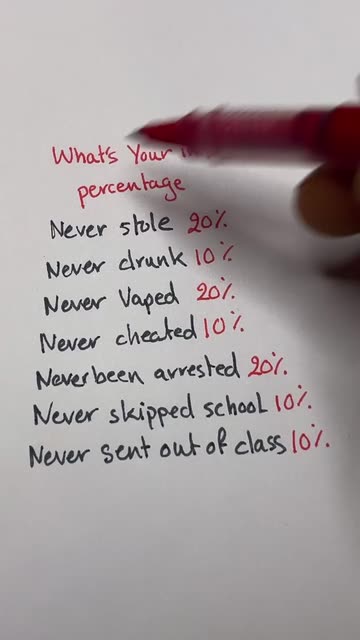 What's Your
percentage
Never stole 20%
Never drunk 10%
Never Vaped 20%
Never cheated 10%
Never been arrested 20%
Never skipped school 10%
Never sent out of class 10%